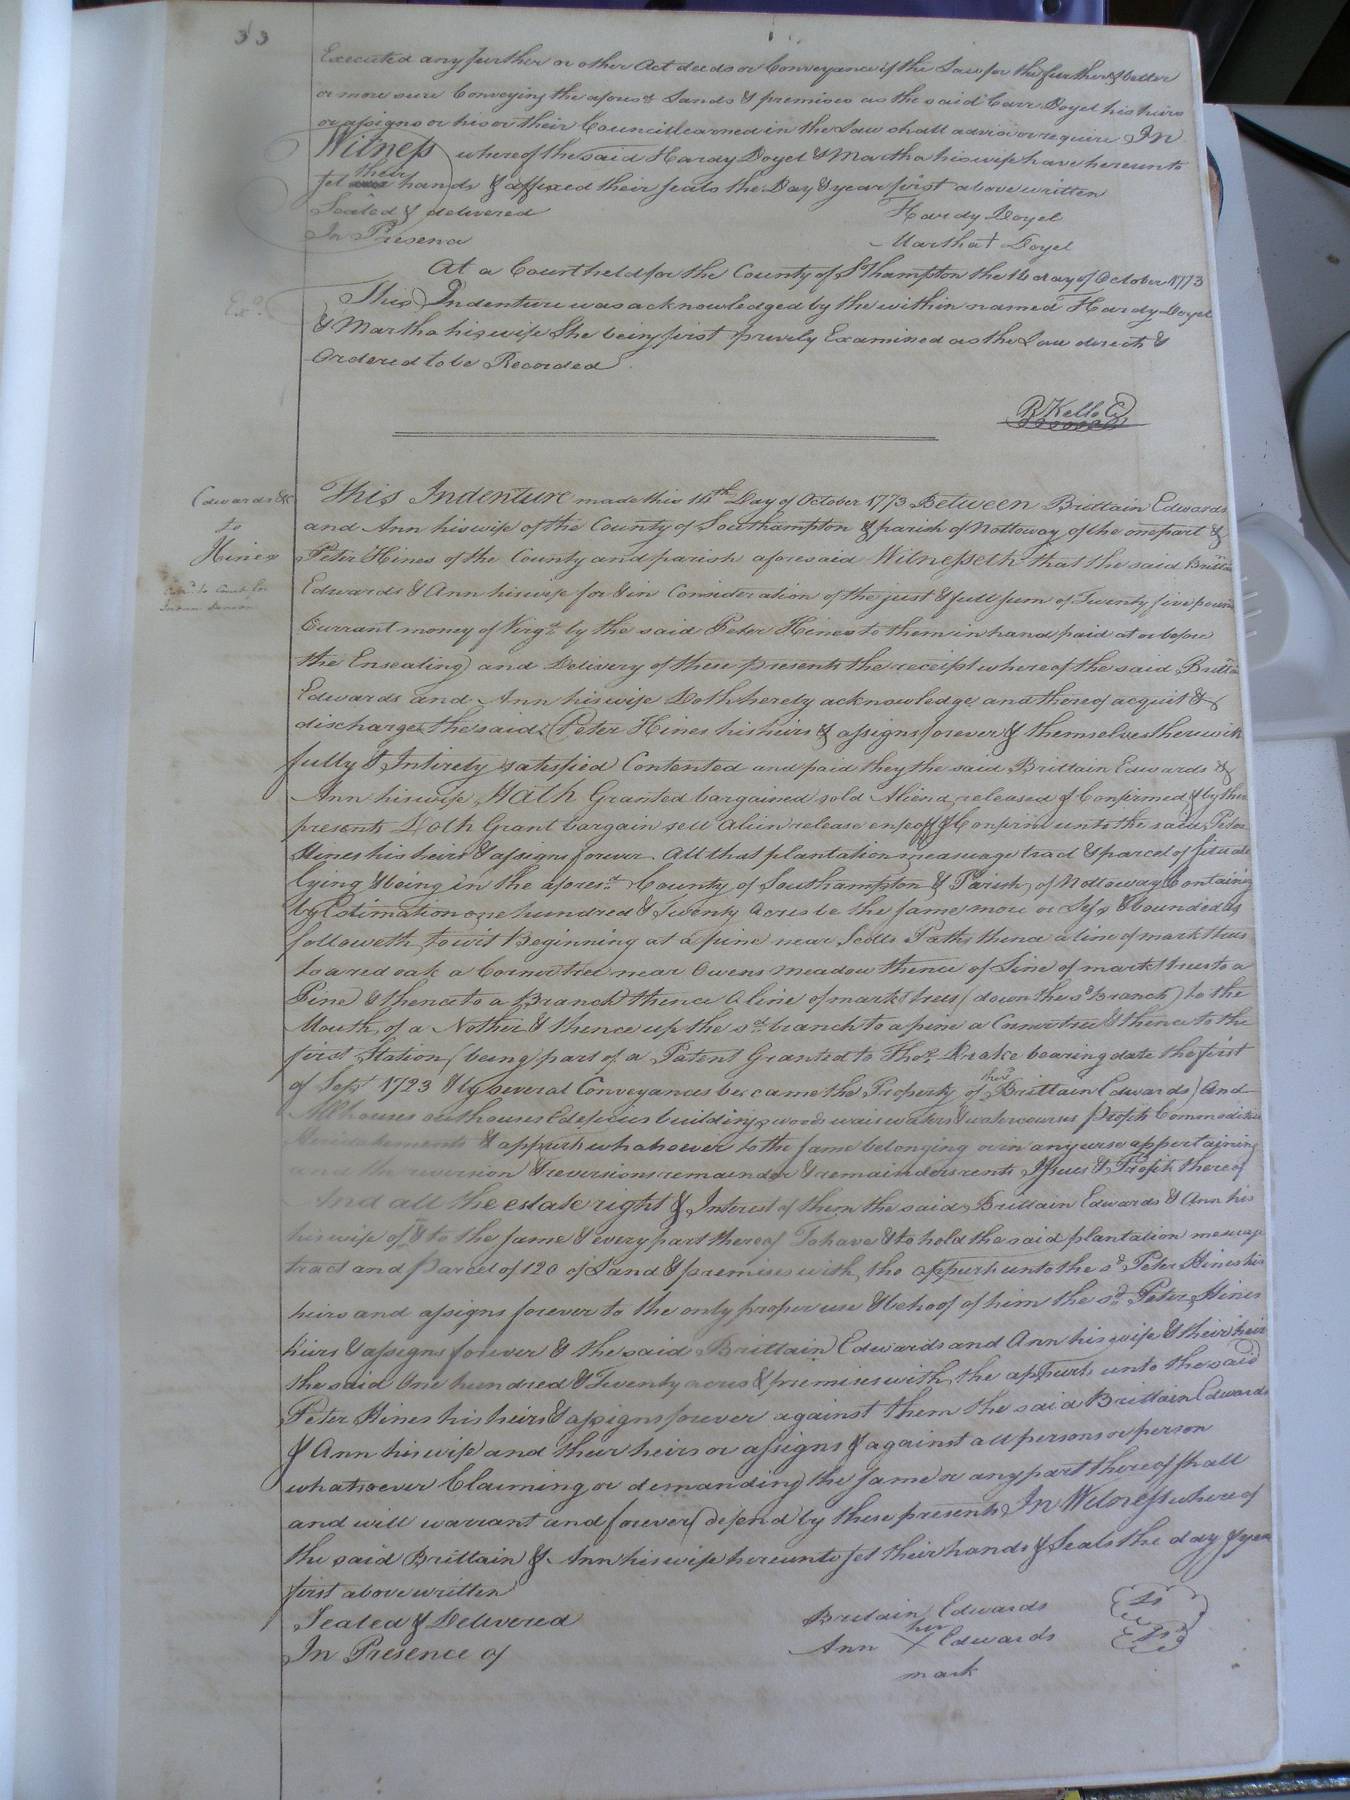 33
Executed any further or other Act deeds or Conveyance of the Law for the further & better
or more sure Conveying the afores.d Lands & premises as the said Carr Doyel his heirs
or assigns or his or their Council learned in the Law shall advise or require In
Witness whereof the said Hardy Doyel & Martha his wife have hereunto
set their hands & affixed their seals the Day & year first above written
Sealed & delivered Hardy Doyel
In Presence Martha + Doyel
At a Court held for the County of S.thampton the 14 day of October 1773
Ex.d
This Indenture was acknowledged by the within named Hardy Doyel
& Martha his wife She being first privily Examined as the Law directs &
Ordered to be Recorded
R Kello C
Edwards &c
to
Hines
This Indenture made this 14th Day of October 1773 Between Brittain Edwards
and Ann his wife of the County of Southampton & parish of Nottoway of the one part &
Peter Hines of the County and parish aforesaid Witnesseth that the said Britta.n
Edwards & Ann his wife for & in Consideration of the just & full sum of Twenty five pounds
Currant money of Virg.a by the said Peter Hines to them in hand paid at or before
the Ensealing and Delivery of these presents the receipt whereof the said Britta.n
Edwards and Ann his wife Doth hereby acknowledge and thereof acquit &
discharge the said Peter Hines his heirs & assigns forever & themselves therewith
fully & Intirely satisfied Contented and paid they the said Brittain Edwards &
Ann his wife Hath Granted bargained sold Aliend released & Confirmed & by these
presents Doth Grant bargain sell alien release enfeoff & Confirm unto the said Peter
Hines his heirs & assigns forever All that plantation measuage tract & parcel of situate
lying & being in the afores.d County of Southampton & Parish of Nottoway Containing
by Estimation one hundred & Twenty Acres be the same more or Less & bounded as
followeth, to wit Beginning at a pine near Scotts Path thence a line of mark trees
to a red oak a Corner tree near Owens meadow thence of Line of mark trees to a
Pine & thence to a Branch thence a line of mark trees down the s.d Branch to the
Mouth of a Nother & thence up the s.d branch to a pine a Corner tree & thence to the
first Station (being part of a Patent Granted to Tho.s Drake bearing date the first
of Sept 1723 & by several Conveyances became the Property of the s.d Brittain Edwards) And
All houses outhouses Edefices buildings woods ways waters & watercourses Profits Commodities
& appurts whatsoever to the same belonging or in any wise appertaining
and the reversion & reversions remainder & remainders rents Issues & Profits thereof
And all the estate right & Interest of them the said Brittain Edwards & Ann his
his wife of in & to the same & every part thereof To have & to hold the said plantation mesuage
tract and parcel of 120 of Land & premises with the appurts unto the s.d Peter Hines his
heirs and assigns forever to the only proper use & behoof of him the s.d Peter Hines
heirs & assigns forever & the said Brittain Edwards and Ann his wife & their heirs
the said One hundred & Twenty acres & premises with the appurts unto the said
Peter Hines his heirs & assigns forever against them the said Brittain Edwards
& Ann his wife and their heirs or assigns & against all persons or person
whatsoever Claiming or demanding the same or any part thereof shall
and will warrant and forever defend by these presents In Witness whereof
the said Brittain & Ann his wife hereunto set their hands & Seals the day & year
first above written
Sealed & Delivered Brittain Edwards Ls
In Presence of Ann her X Edwards Ls
mark